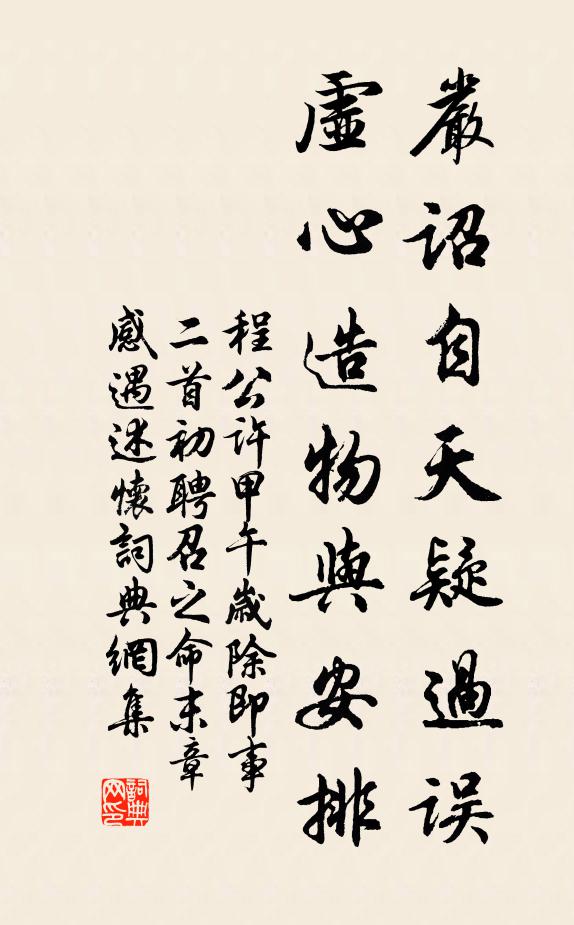 嚴詔自天疑過誤
虛心造物與安排
程公許甲午歲除即事
二首初聘召之命末章
感遇述懷詞典網集
詞典网印